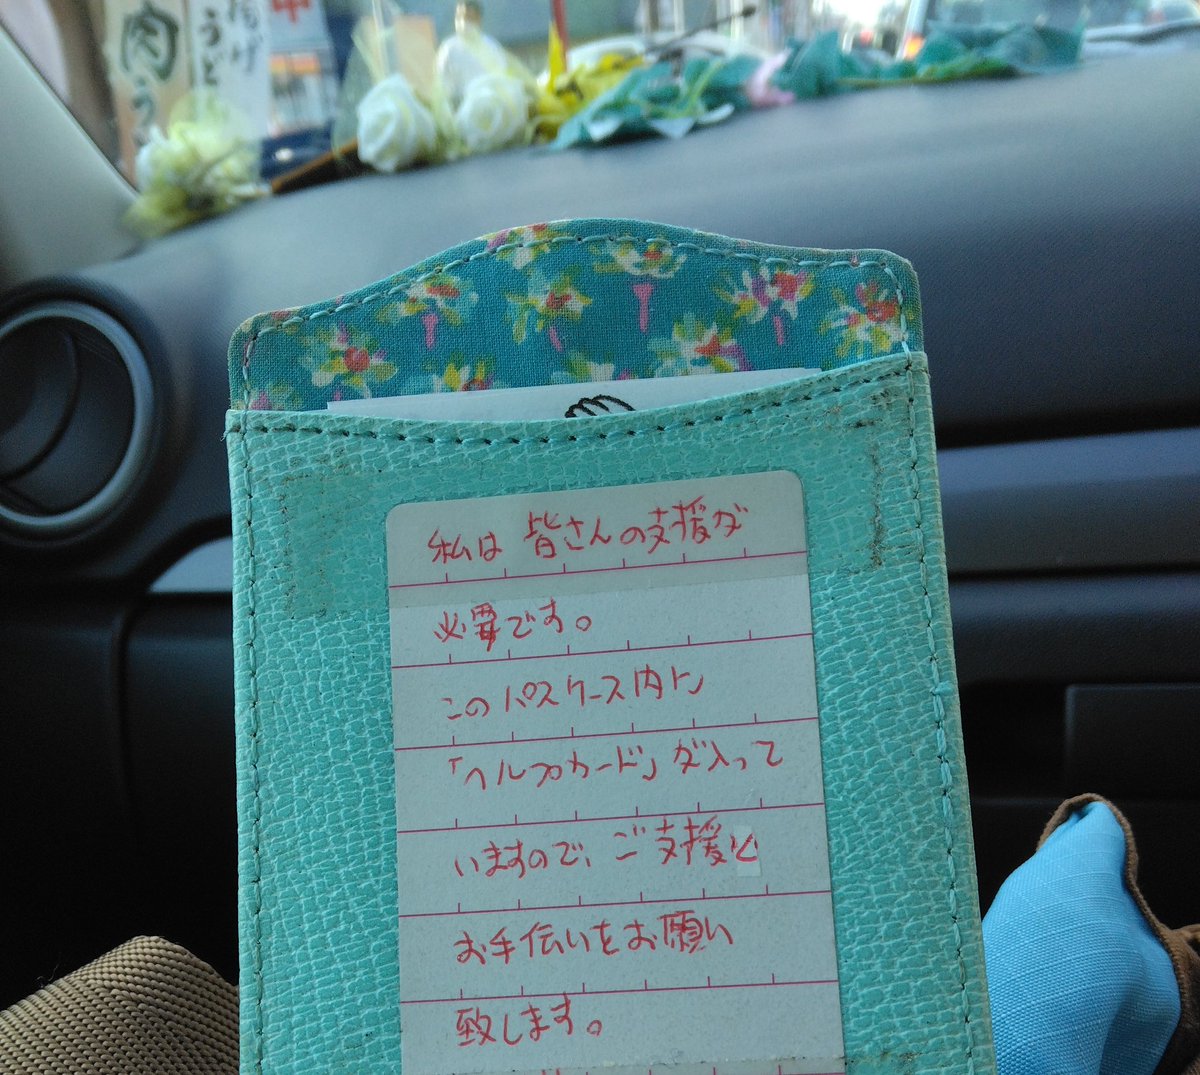 肉う
うど
私は 皆さんの支援が
必要です。
このパスケース内に
「ヘルプカード」が入って
いますので、ご支援と
お手伝いをお願い
致します。